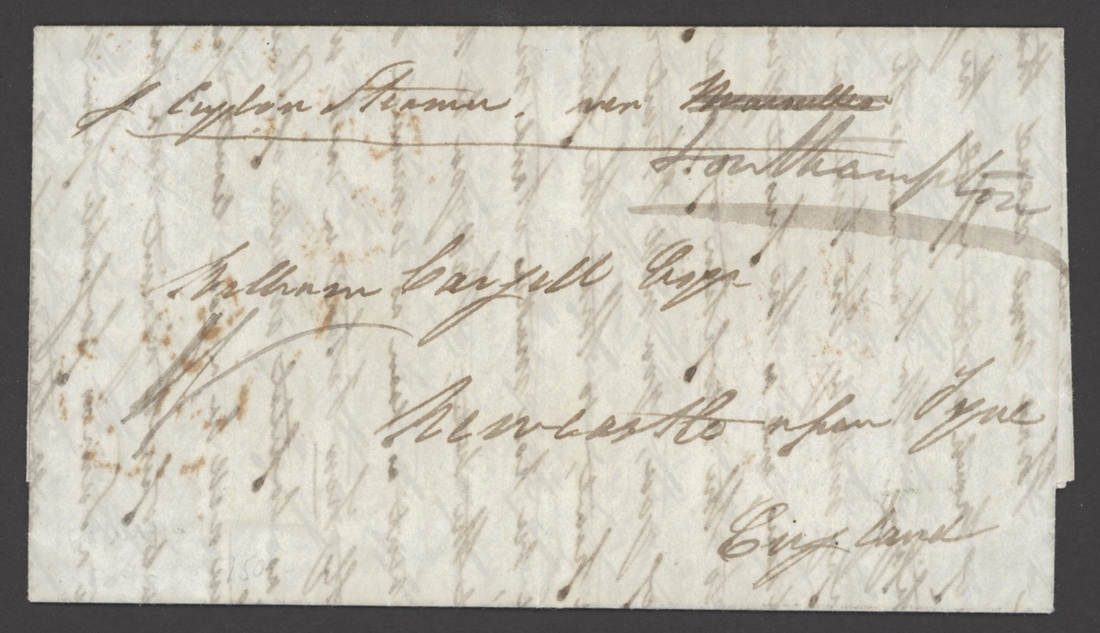 p Ceylon Steamer. via Marseilles
Southampton
William Cargill Esqr
Newcastle upon Tyne
England
150